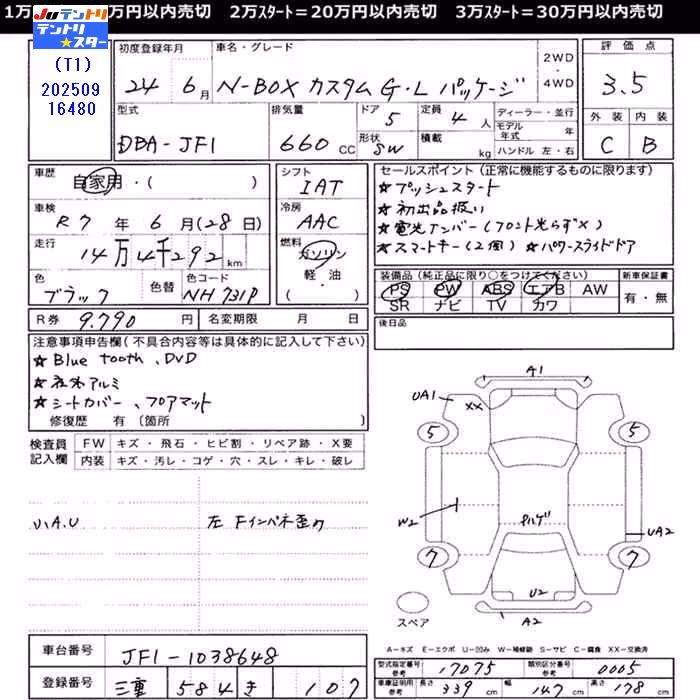 1万 万円以内売切 2万ｽﾀｰﾄ＝20万円以内売切 3万ｽﾀｰﾄ＝30万円以内売切
JUテントリ
テントリ★スター
(T1)
202509
16480
初度登録年月 車名・グレード 2WD・4WD
24年 6月 N-BOX カスタム G・L パッケージ
評価点
3.5
外装 内装
C B
型式 排気量 ドア 定員 ディーラー・並行
DBA-JF1 660 CC 5 4人
形状 積載 モデル年式 年
SW kg ハンドル 左・右
車歴 自家用・( )
シフト IAT
車検 R7年 6月(28日)
冷房 AAC
走行 14万4千292km
燃料 ガソリン 軽・油 ・( )
色 色替 色コード
ブラック NH731P
R券 9.790円 名変期限 月 日
セールスポイント (正常に機能するものに限ります)
★プッシュスタート
★初出品扱い
★電光ナンバー(フロント光らず×)
★スマートキー(2個) ★パワースライドドア
装備品 (純正品に限り○をつけてください) 新車保証書
PS PW ABS エアB AW 有・無
SR ナビ TV カワ
後日品
注意事項申告欄(不具合内容等は具体的に記入して下さい)
★Blue tooth、DVD
★社外アルミ
★シートカバー、フロアマット
修復歴 有〔箇所 〕
検査員記入欄 FW キズ・飛石・ヒビ割・リペア跡・X要
内装 キズ・汚レ・コゲ・穴・スレ・キレ・破レ
ハ.A.U 左 Fインパネ歪り
A1
UA1 XX
5 5
W2 UA2
7 7
U2
A2
スペア
A－キズ E－エクボ U－凹み W－補修跡 S－サビ C－腐食 XX－交換済
車台番号 JF1-1038648
登録番号 三重 584 き 107
型式指定番号 参考 17075 類別区分番号 参考 0005
車庫証明用 参考 長さ 339 cm 幅 147 cm 高さ 178 cm